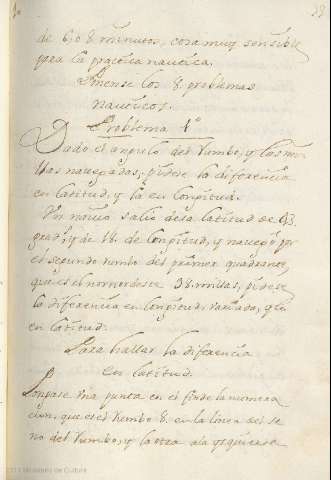 de 6, o 8 minutos, cosa muy sensible
para la practica nautica.
Ponense los 8 problemas
nauticos.
Problema 1º
Dado el angulo del Rumbo, y las mi-
llas navegadas, pidese la diferencia
en latitud, y la en Longitud.
Un navio salio de la latitud de
grados, y de 18 de Longitud, y navegò por
el segundo rumbo del primer quadrante
que es el nornordeste 38 millas, pidese
la diferencia en Longitud, variada, y la
en latitud.
Para hallar la diferencia
en latitud.
Pongase una punta en el fin de la numera
cion, que es el Rumbo 8. en la linea del se
no del Rumbo, y la otra